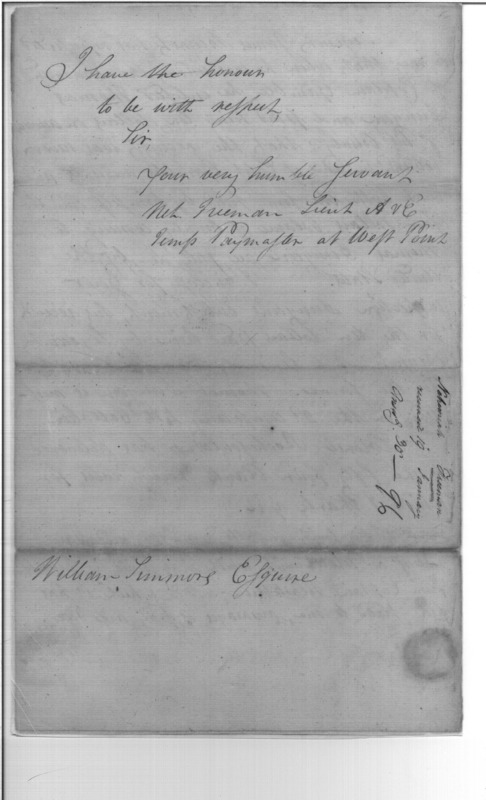 I have the honour
to be with respect,
Sir,
Your very humble Servant
Neh Freeman Lieut A&E
Temp Paymaster at West Point
Nehemiah Freeman
received 19 January
20 — 96
William Simmons Esquire